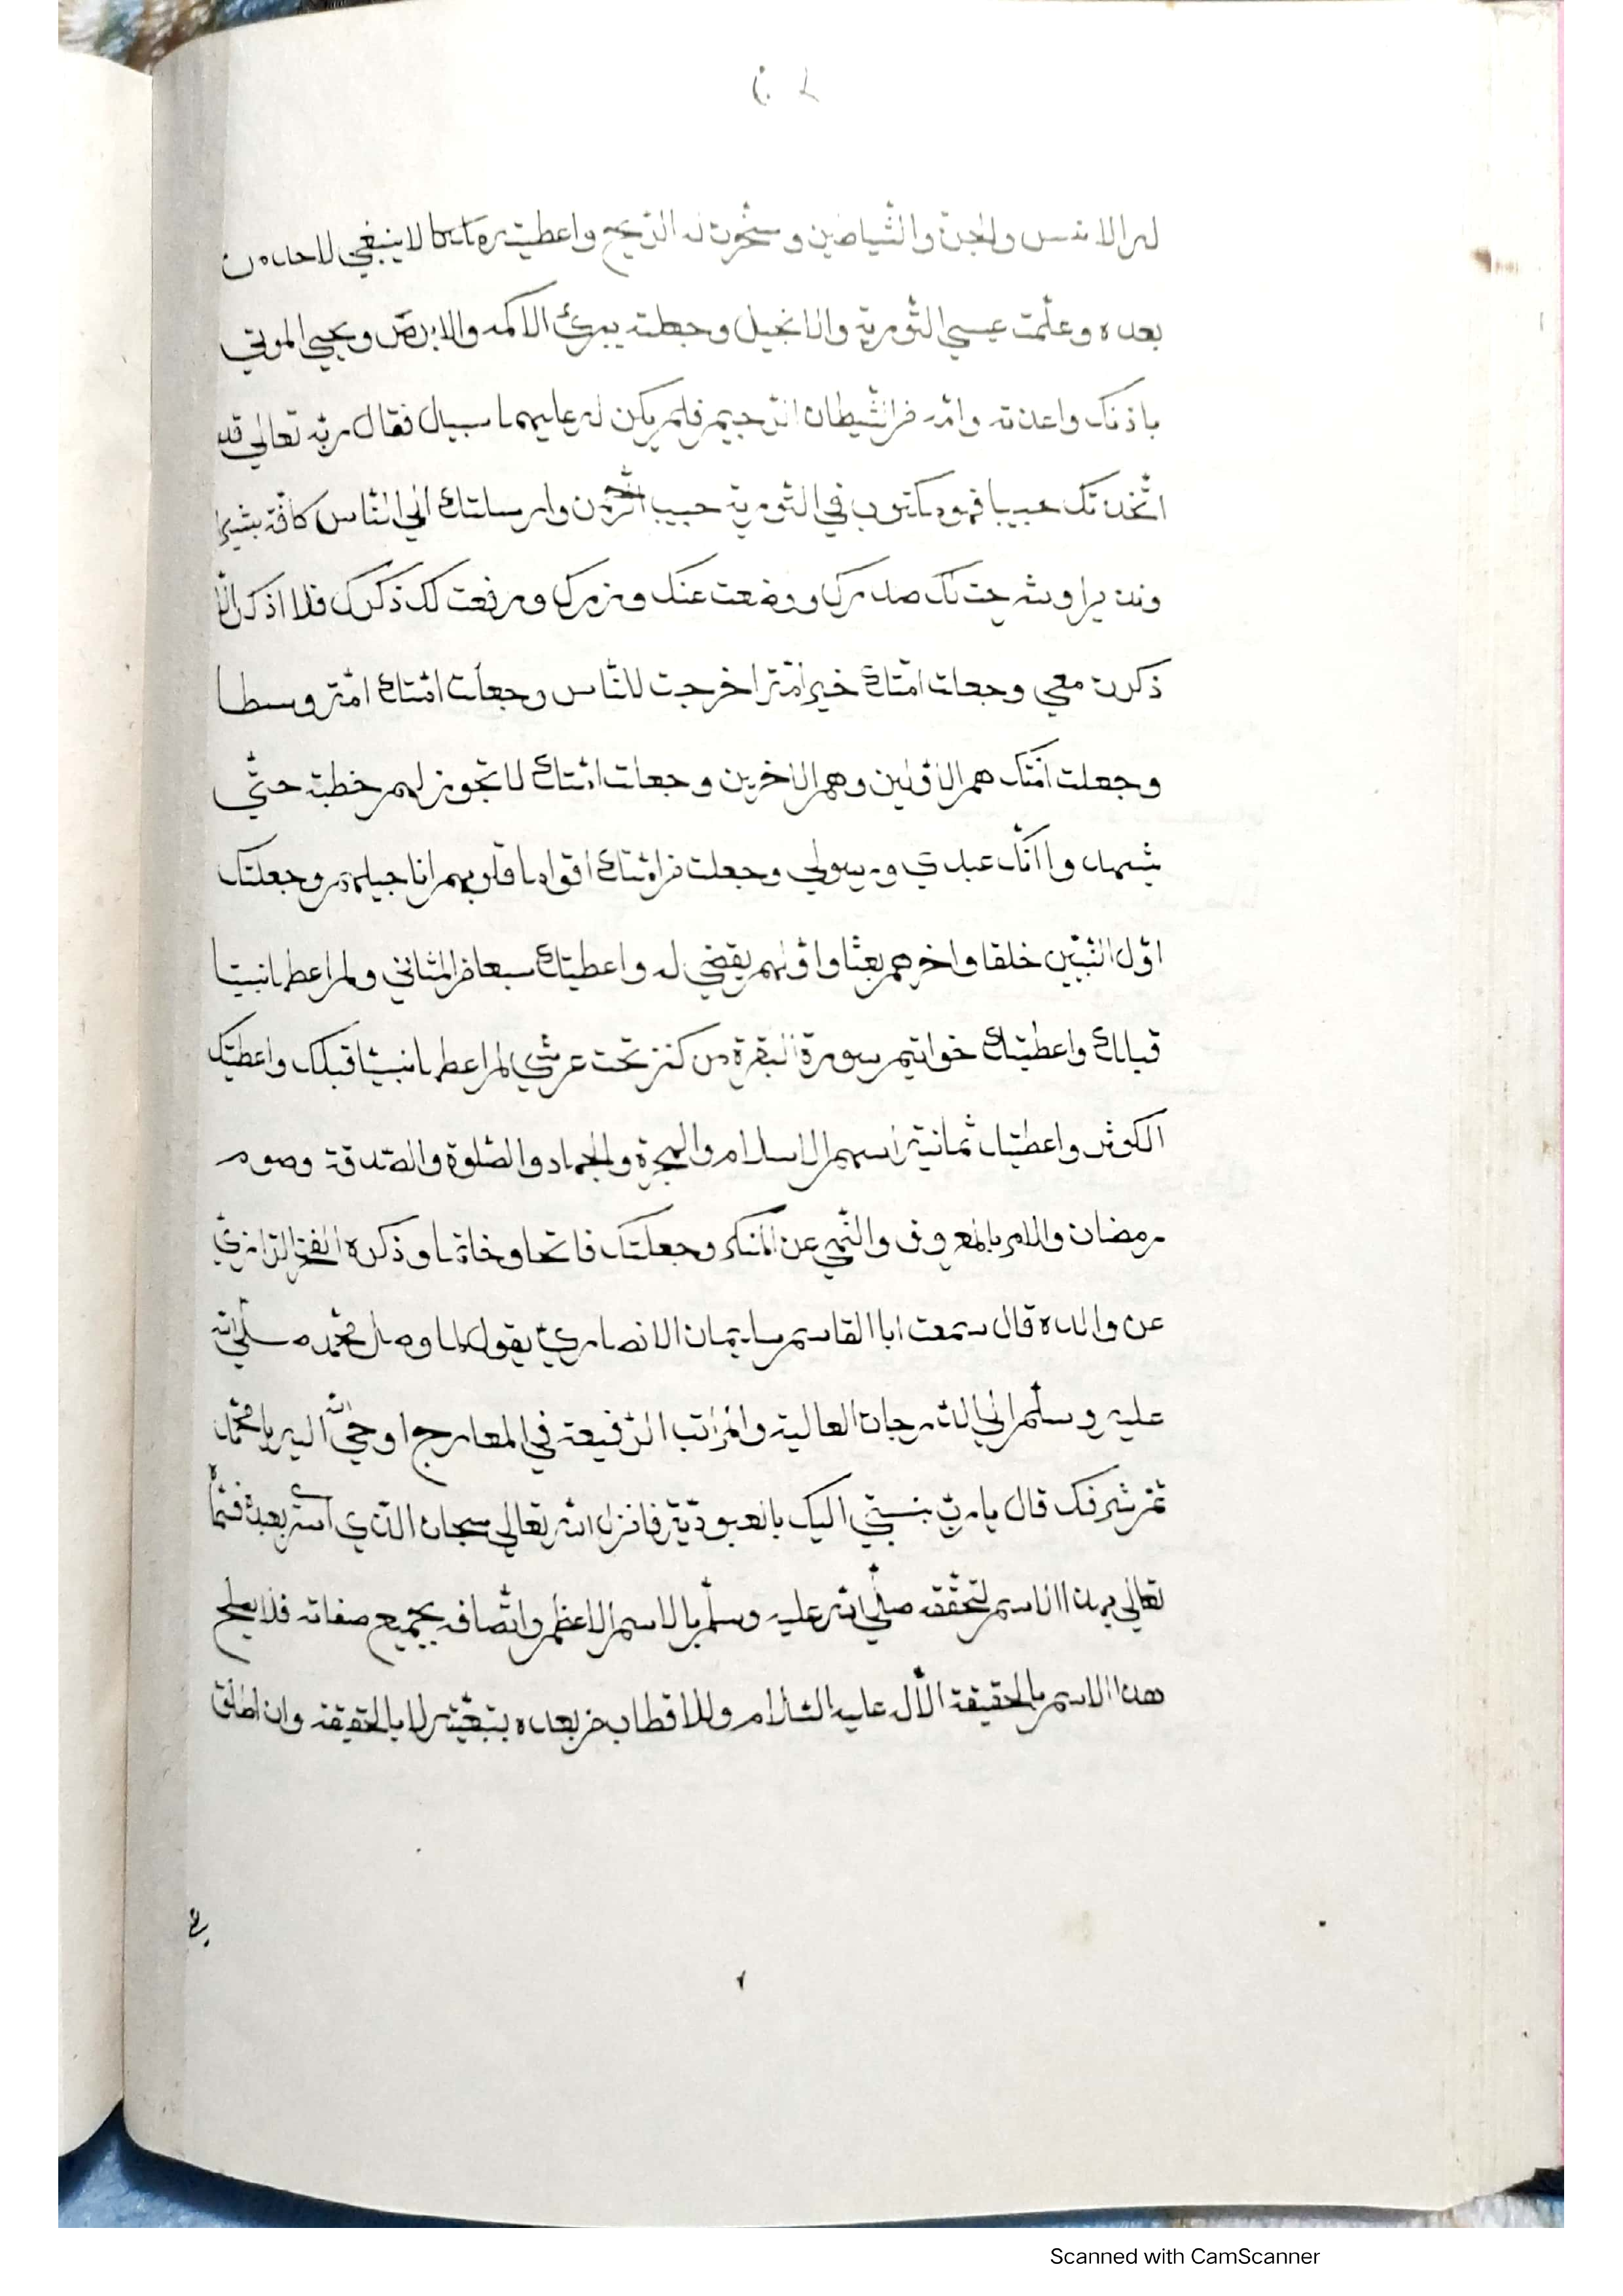 له الانس والجن والشياطين وسخرت له الريح واعطيته ملكا لا ينبغي لاحد من
بعده وعلمت عيسي التورية والانجيل وجعلته يبرئ الاكمه والابرص ويحيي الموتي
باذنك واعذته وامه من الشيطان الرجيم فلم يكن له عليهما سبيل فقال ربه تعالي قد
اتخذتك حبيبا فهو مكتوب في التورية حبيب الرحمن وارسلتك الي الناس كافة بشيرا
ونذيرا وشرحت لك صدرك ووضعت عنك وزرك ورفعت لك ذكرك فلا اذكر الا
ذكرت معي وجعلت امتك خير امة اخرجت للناس وجعلت امتك امة وسطا
وجعلت امتك هم الاولين وهم الاخرين وجعلت امتك لا تجوز لهم خطبة حتي
يشهدوا انك عبدي ورسولي وجعلت من امتك اقواما قلوبهم اناجيلهم وجعلتك
اول النبيين خلقا واخرهم بعثا واولهم يقضي له واعطيتك سبعا من المثاني ولم اعطها نبيا
قبلك واعطيتك خواتيم سورة البقرة من كنز تحت عرشي لم اعطها نبيا قبلك واعطيتك
الكوثر واعطيتك ثمانية اسهم الاسلام والهجرة والجهاد والصلوة والصدقة وصوم
رمضان والامر بالمعروف والنهي عن المنكر وجعلتك فاتحا وخاتما وذكره الفخر الرازي
عن والده قال سمعت ابا القاسم سليمان الانصاري يقول لما وصل محمد صلي الله
عليه وسلم الي الدرجات العالية والمراتب الرفيعة في المعارج اوحي الله اليه يا محمد
ثم شرفك قال يا رب بنسبتي اليك بالعبودية فانزل الله تعالي سبحان الذي اسري بعبده
تعالي بهذا الاسم لتحققه صلي الله عليه وسلم بالاسم الاعظم واتصافه بجميع صفاته فلا يصلح
هذا الاسم بالحقيقة الا له عليه السلام وللاقطاب من بعده بتبعيته لا بالحقيقة وان اطلق
Scanned with CamScanner